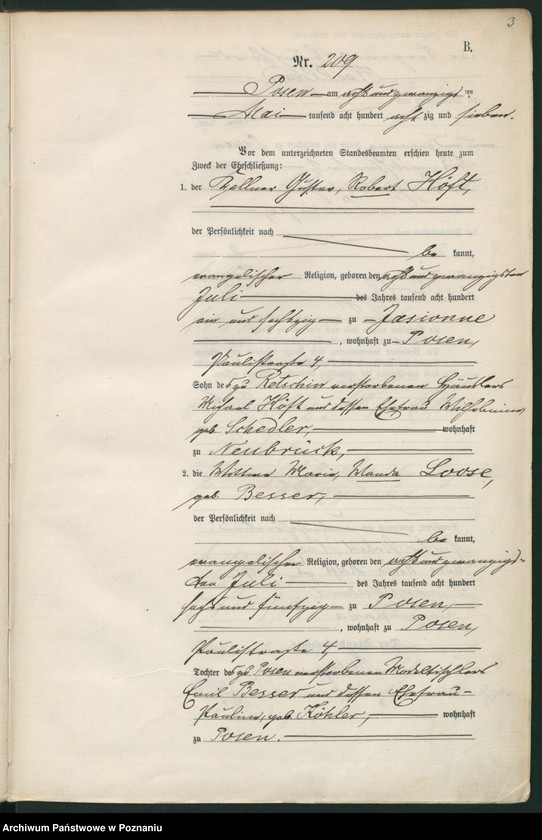 3
B.
Nr. 209
Posen am acht und zwanzigsten
Mai tausend acht hundert acht zig und sieben.
Vor dem unterzeichneten Standesbeamten erschien heute zum
Zweck der Eheschließung:
1. der Kellner Gustav, Robert Höft,
der Persönlichkeit nach
be kannt,
evangelischer Religion, geboren den acht und zwanzigsten
Juli des Jahres tausend acht hundert
ein und sechszig zu Jasionne
, wohnhaft zu Posen,
Paulistrasse 4,
Sohn des zu Retschin verstorbenen Häuslers
Michael Höft und dessen Ehefrau Wilhelmine,
geb. Schedler, wohnhaft
zu Neubrück,
2. die Wittwe Marie, Wanda Loose,
geb. Besser,
der Persönlichkeit nach
be kannt,
evangelischer Religion, geboren den acht und zwanzigs-
ten Juli des Jahres tausend acht hundert
sechs und fünfzig zu Posen,
, wohnhaft zu Posen,
Paulistrasse 4,
Tochter des zu Posen verstorbenen Modelltischlers
Emil Besser und dessen Ehefrau
Pauline, geb. Köhler, wohnhaft
zu Posen.
Archiwum Państwowe w Poznaniu